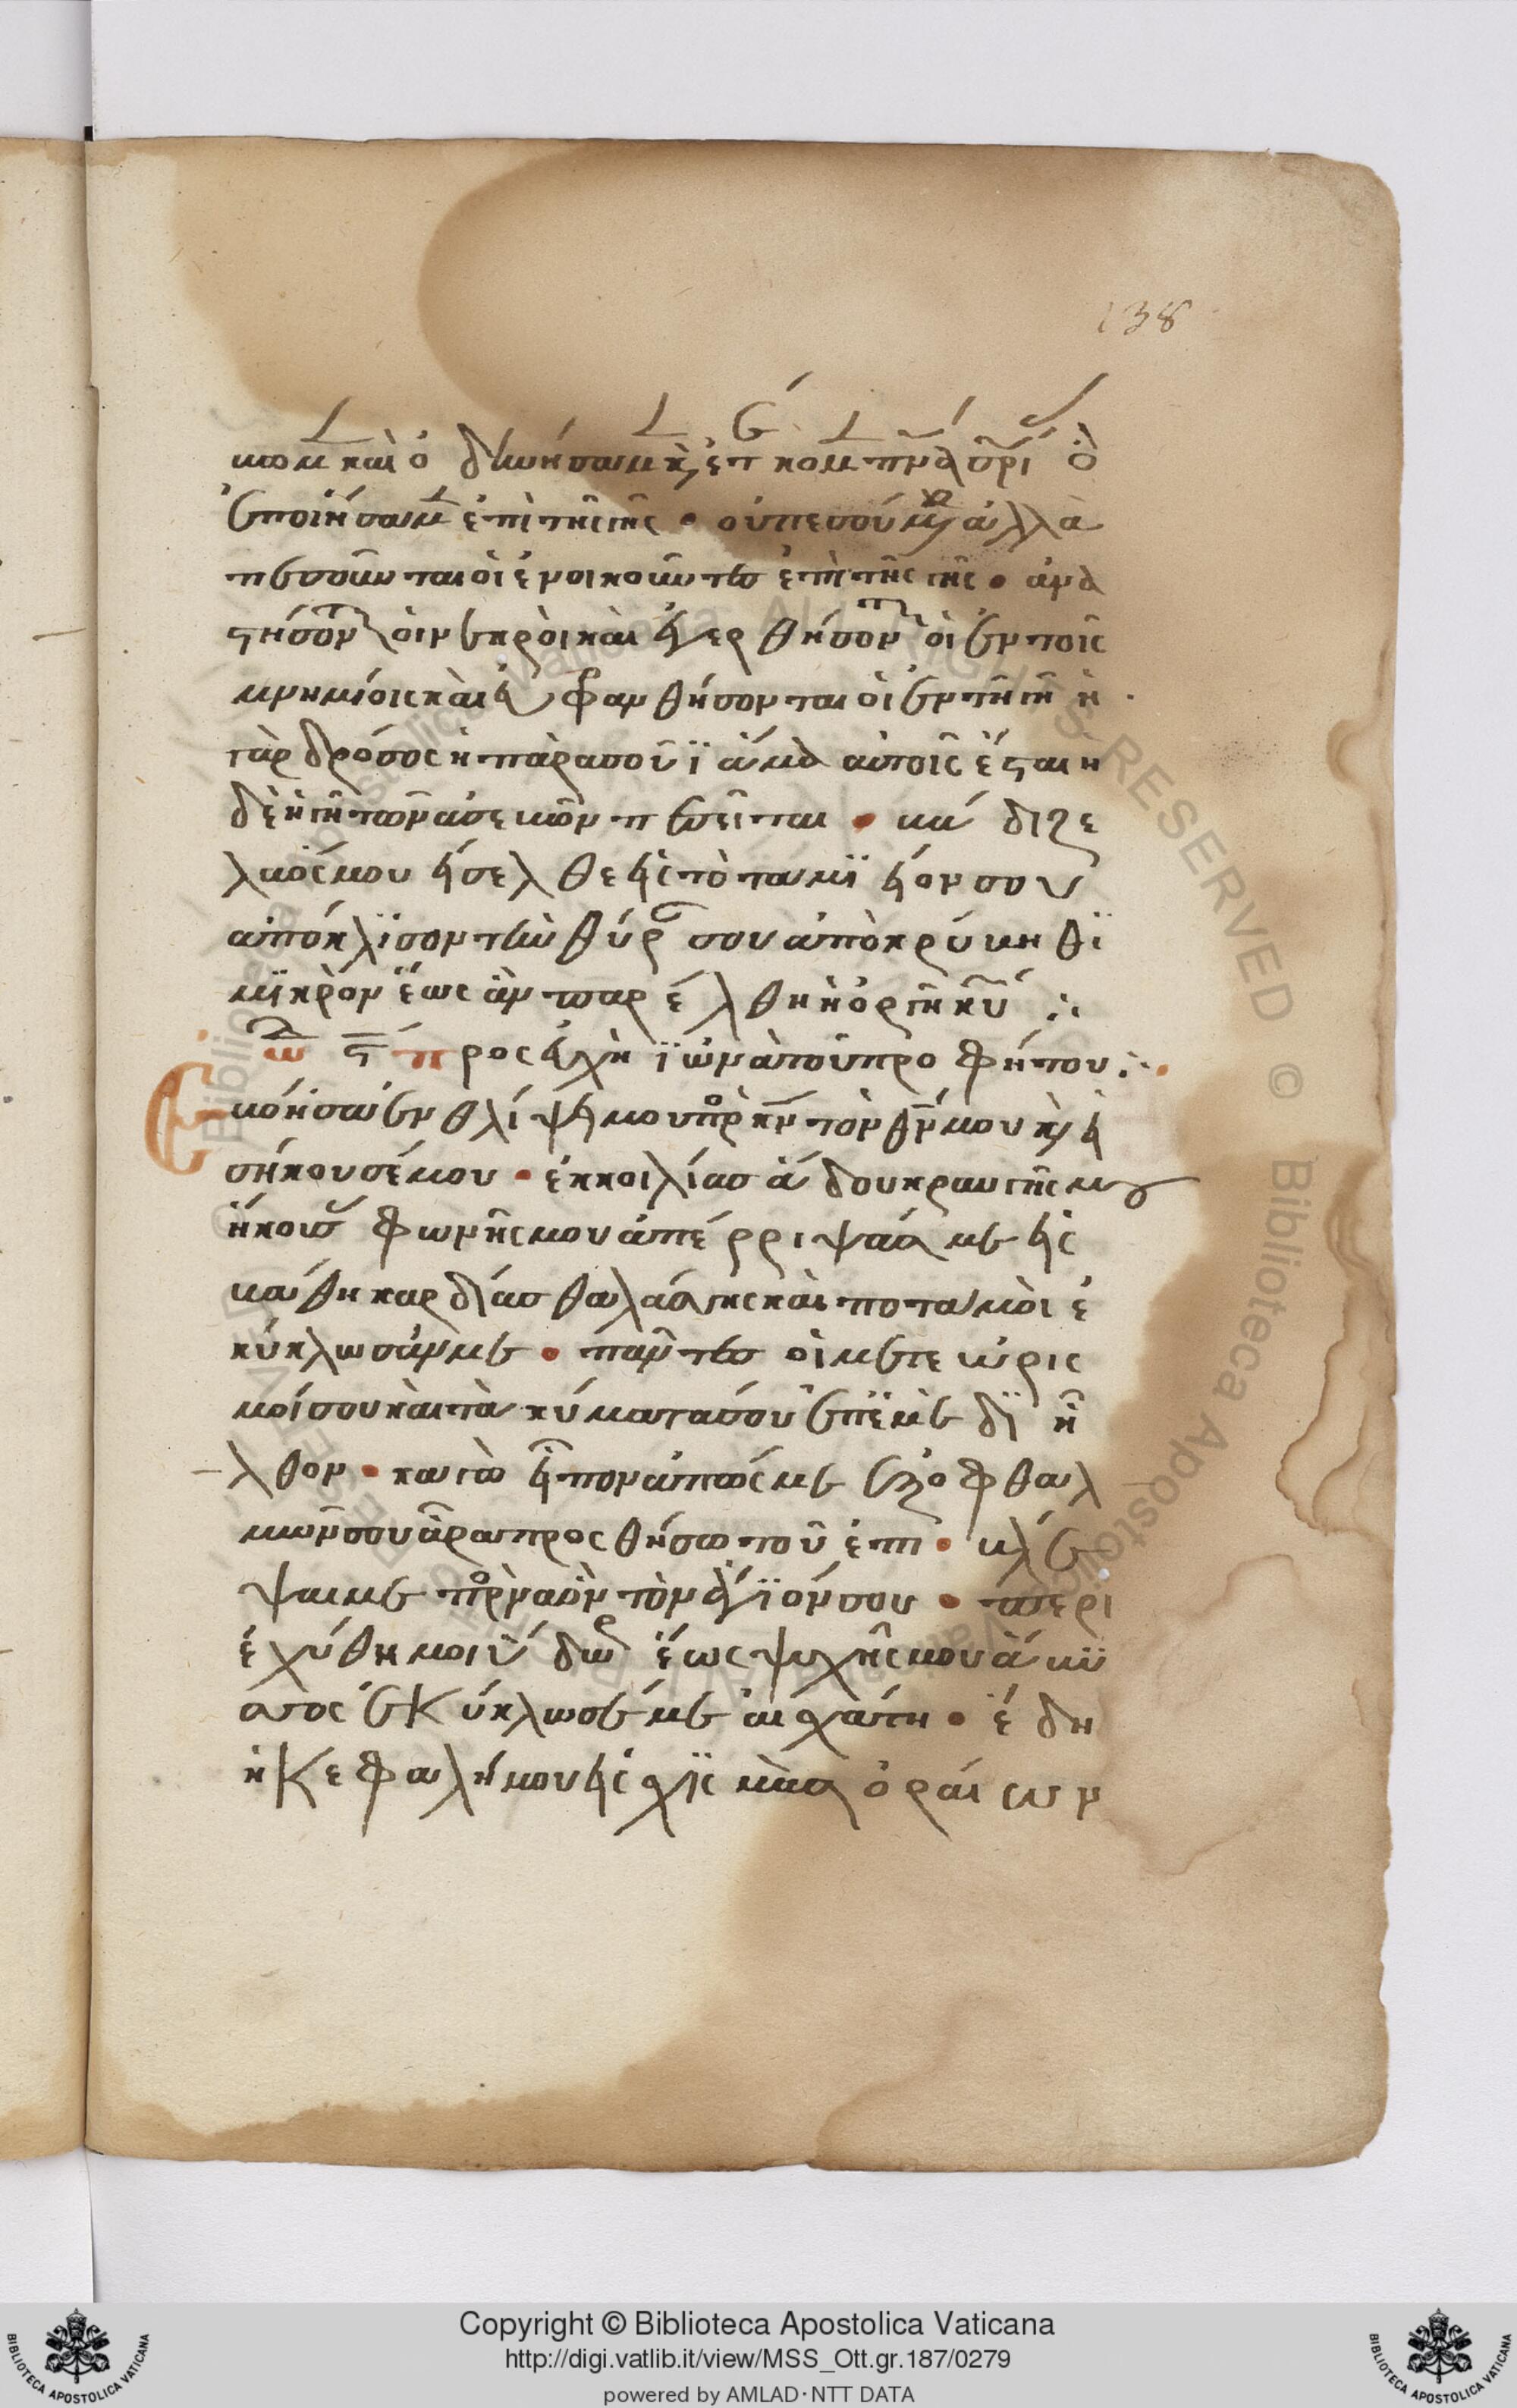 138
βομεν καὶ ὀδινήσαμεν κ(αὶ) ἐτέκομεν πν(εῦμ)α σ(ωτη)ρί(ας) σου ὃ
ἐποιήσαμεν ἐπὶ τῆς γῆς · οὐ πεσούμεθα ἀλλὰ
πεσοῦνται οἱ ἐνοικοῦντες ἐπὶ τῆς γῆς · ἀνα
στήσονται οἱ νεκροὶ καὶ ἐγερθήσονται οἱ ἐν τοῖς
μνημίοις καὶ εὐφανθήσονται οἱ ἐν τῆ γῆ ἡ ·
γὰρ δρόσος ἡ παρασοῦ ΐαμα αὐτοῖς ἔσται ἡ
δὲ ἡ γῆ τῶν ἀσεβῶν πεσεῖται · βάδιζε
λαός μου εἴσελθε εἰς τὸ ταμϊεῖον σου
ἀπόκλϊσον τὴν θύραν σου ἀποκρύβηθϊ
μϊκρὸν ἕως ἂν παρέλθη ἡ ὀργὴ κ(υρίο)υ :·
ὠδ(ὴ) ϛ προσευχὴ ϊωνὰ τοῦ προφήτου :·
Ἐβόησα ἐν θλίψει μου πρὸ(ς) κ(ύριο)ν τὸν θ(εό)ν μου κ(αὶ) εἰ
σήκουσέ μου · ἐκ κοιλίας ἅδου κραυγῆς μου
ἤκουσας φωνῆς μου ἀπέρριψάς με εἰς
βάθη καρδίας θαλάσσης καὶ ποταμοὶ ἐ
κύκλωσάν με · πάντες οἱ μετεωρισ
μοί σου καὶ τὰ κύματα σοῦ ἐπ' ἐμὲ δϊῆ
λθον · καγὼ εἶπον ἀπῶσμε ἐξ ὀφθαλ
μῶν σου ἆρα προσθήσω τοῦ ἐπι · βλέ
ψαι με πρὸ(ς) ναὸν τὸν ἅγϊόν σου · περι
εχύθη μοι ὕδωρ ἕως ψυχῆς μου ἄβυ
σσος ἐκύκλωσέ με ἐσχάτη · ἔδη
ἡ κεφαλή μου εἰς σχϊσμὰς ὀραίων
Copyright © Biblioteca Apostolica Vaticana
http://digi.vatlib.it/view/MSS_Ott.gr.187/0279
powered by AMLAD · NTT DATA